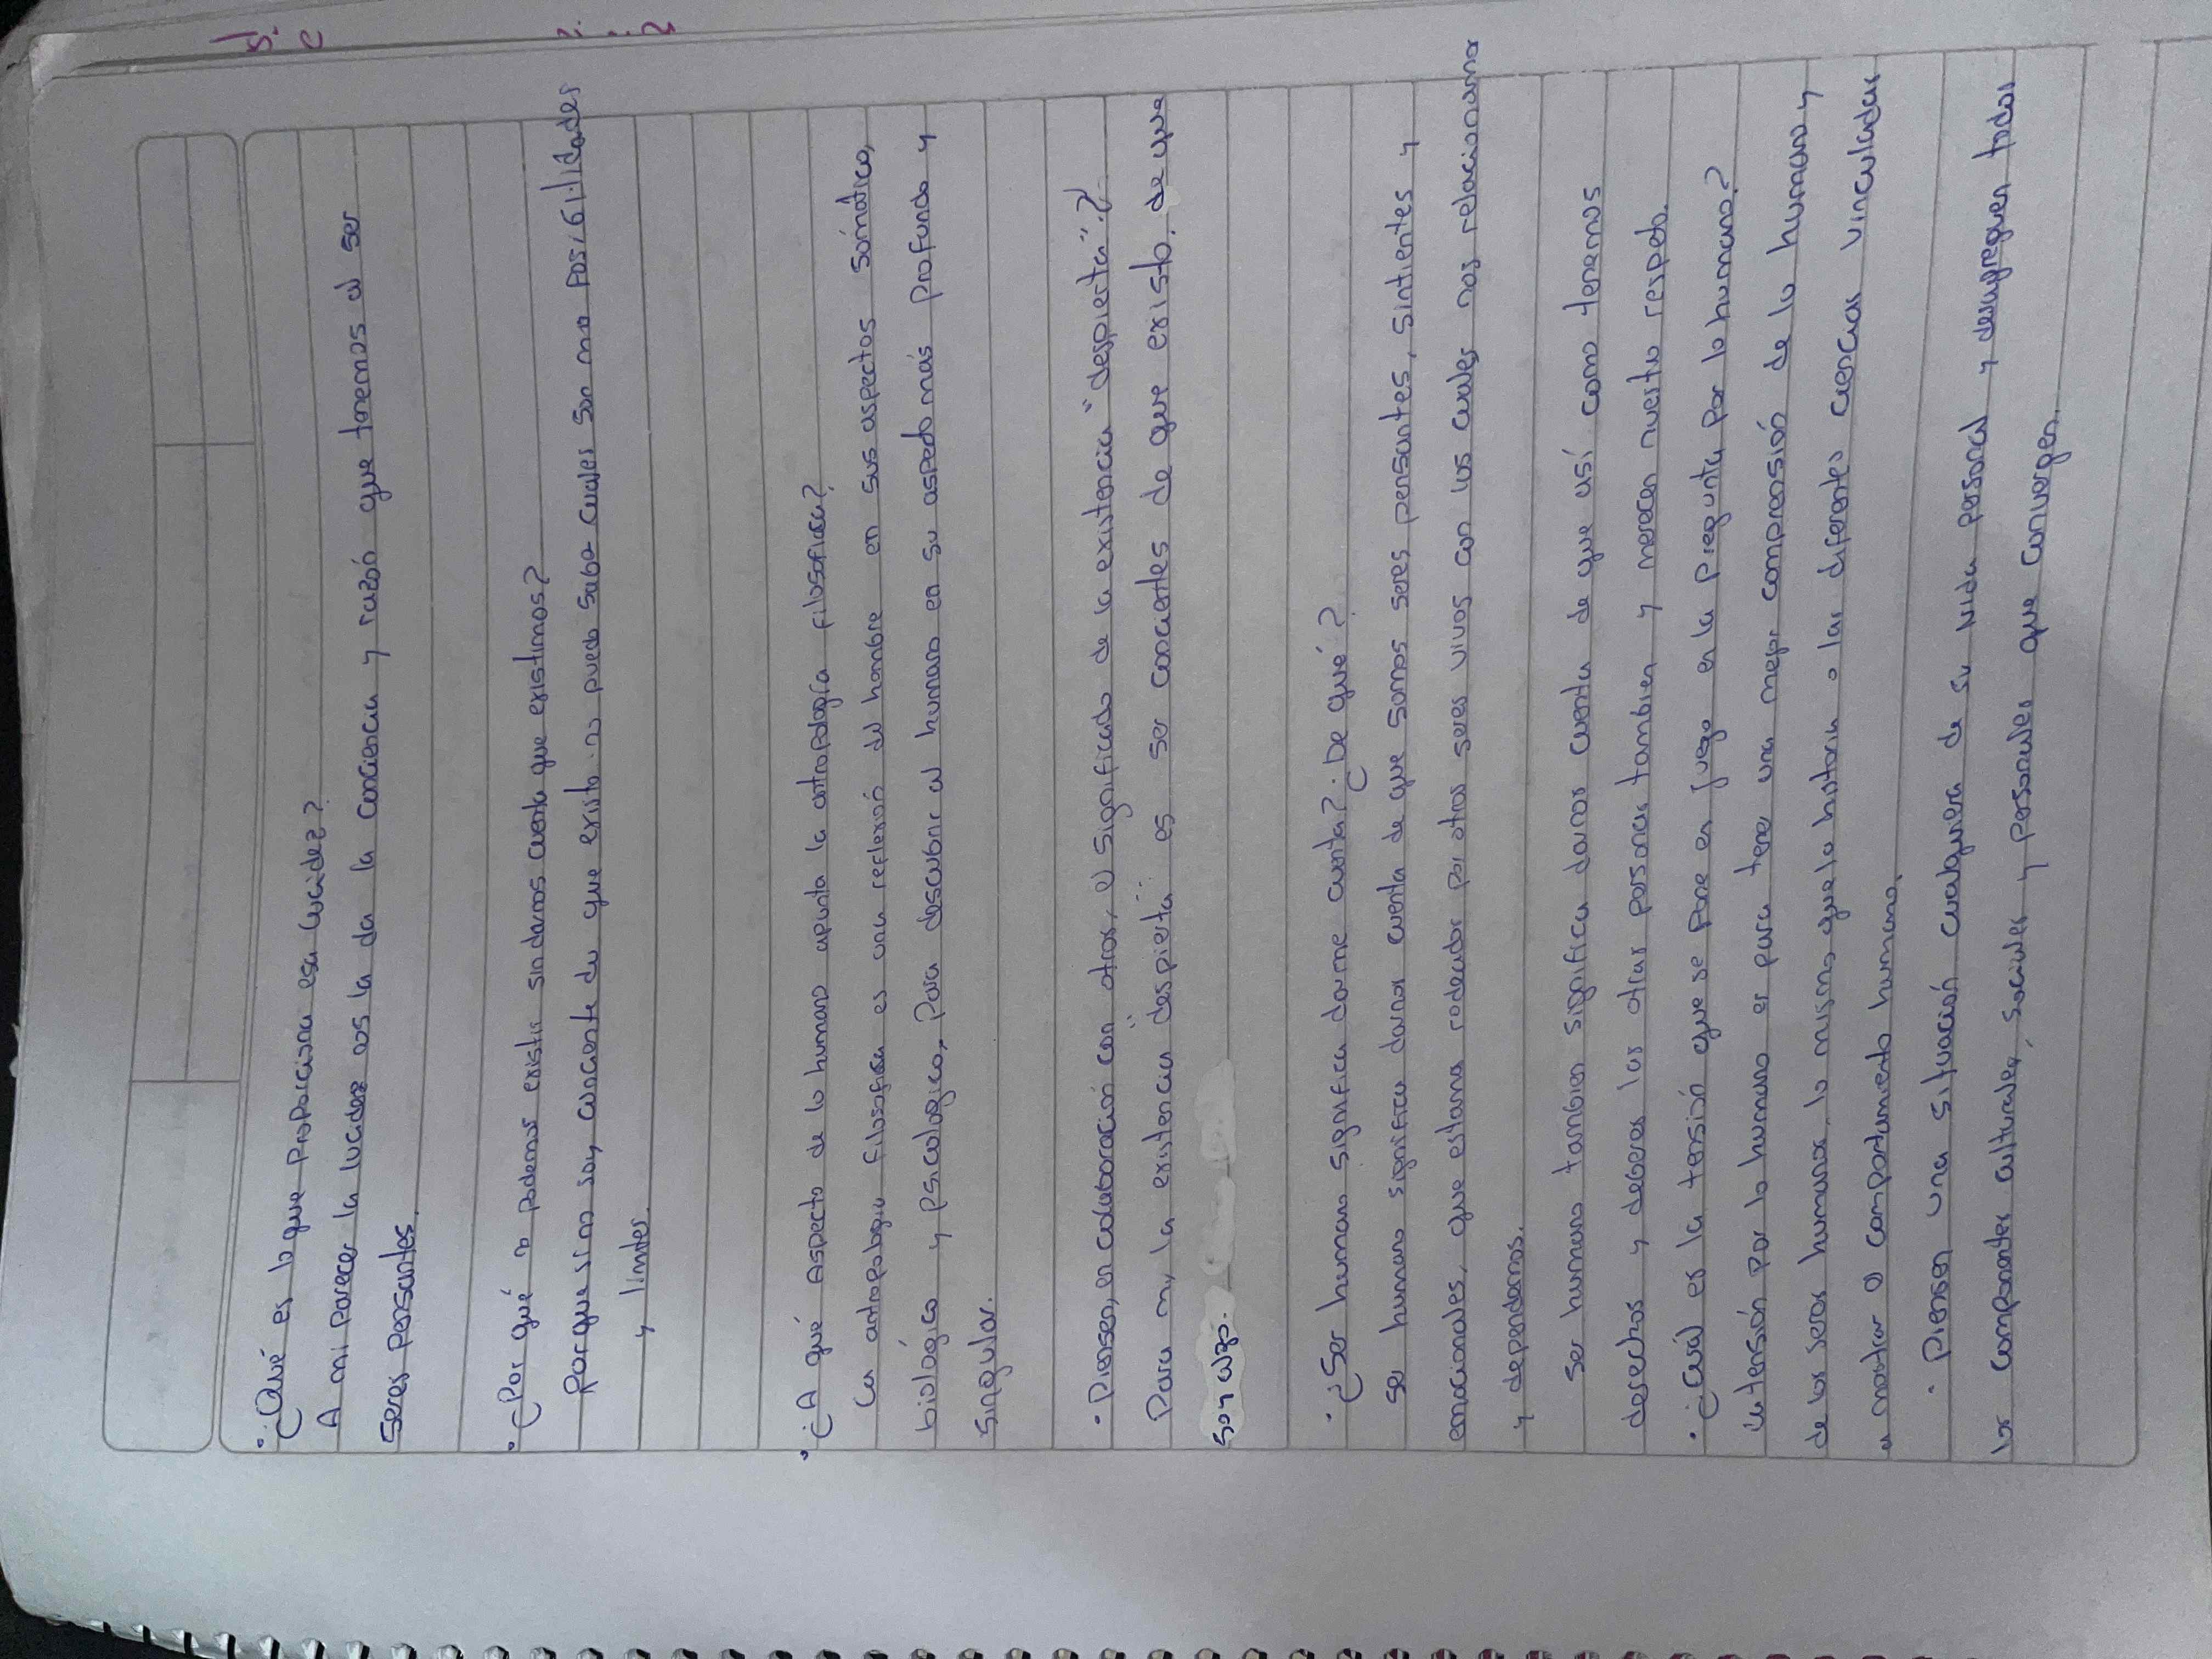 · ¿Qué es lo que proporciona esa lucidez?
A mi parecer la lucidez nos la da la conciencia y razón que tenemos al ser
seres pensantes.
· ¿Por qué no podemos existir sin darnos cuenta que existimos?
Porque si no soy conciente de que existo no puedo saber cuales son mis posibilidades
y limites.
· ¿A qué Aspecto de lo humano apunta la antropología filosofica?
La antropologia filosofica es una reflexión del hombre en sus aspectos somático,
biológico y psicologico, Para descubrir al humano en su aspecto más profundo y
singular.
· Piensen, en colaboración con otros, el significado de la existencia "despierta".?
Para mi, la existencia "despierta" es ser concientes de que existo, de que
soy algo.
· ¿Ser humano significa darme cuenta? ¿De qué?
Ser humano significa darnos cuenta de que somos seres pensantes, sintientes y
emocionales, que estamos rodeados por otros seres vivos con los cuales nos relacionamos
y dependemos.
Ser humano tambien significa darnos cuenta de que así como tenemos
derechos y deberes las otras personas tambien y merecen nuestro respeto.
· ¿Cuál es la tensión que se pone en juego en la pregunta por lo humano?
La tensión por lo humano es para tener una mejor comprensión de lo humano y
de los seres humanos, lo mismo que la historia o las diferentes ciencias vinculadas
a mostrar el comportamiento humano.
· Piensen una situación cualquiera de su vida personal y desplieguen todos
los componentes culturales, sociales y personales que convergen.